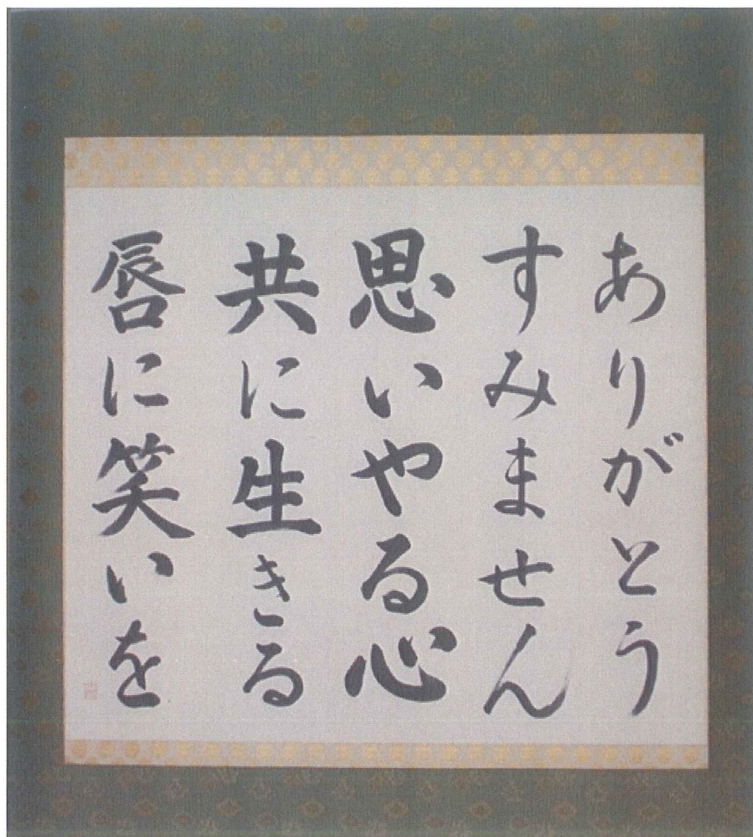 ありがとう
すみません
思いやる心
共に生きる
唇に笑いを